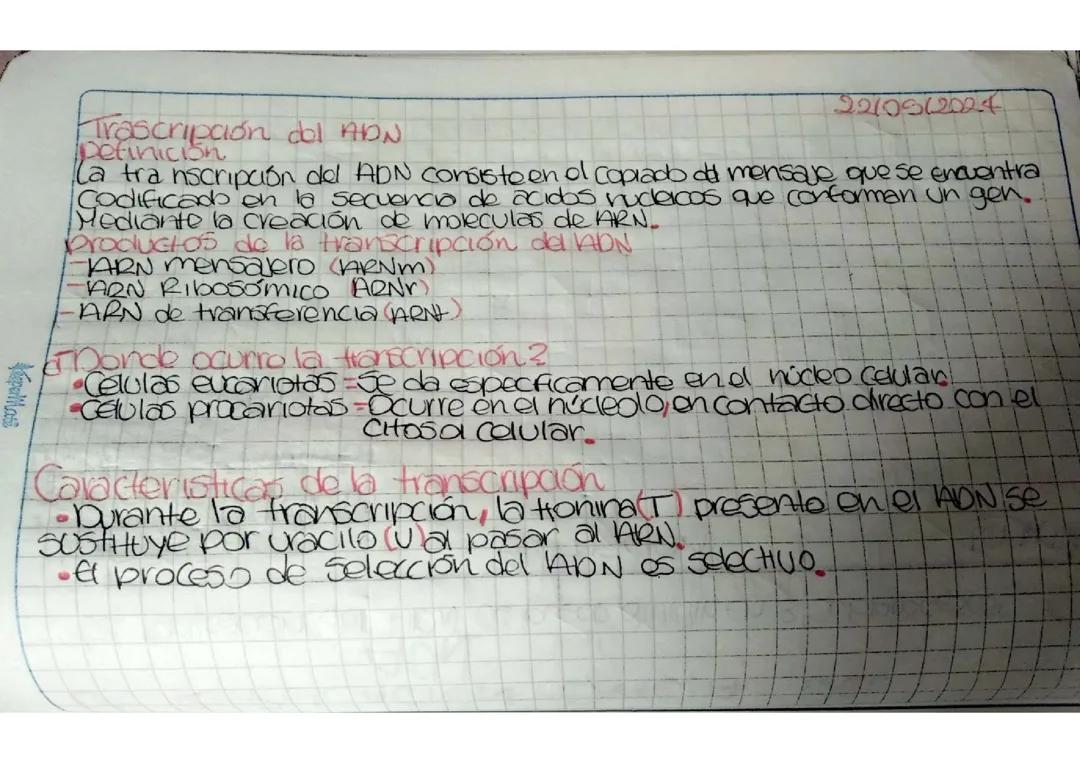 22/05/2024
Trascripción del ADN
Definición
La transcripción del ADN consiste en el copiado del mensaje que se encuentra
codificado en la secuencia de acidos nucleicos que conforman un gen.
Mediante la creación de moleculas de ARN.
Productos de la transcripción del ADN
-ARN mensajero (ARNm)
-ARN Ribosómico (ARNr)
-ARN de transferencia (ARNt)
¿Donde ocurre la transcripción?
•Células eucariotas = Se da especficamente en el núcleo celular.
•Células procariotas = Ocurre en el núcleolo, en contacto directo con el
citosol celular.
Caracteristicas de la transcripción
•Durante la transcripción, la tionina (T) presente en el ADN se
sustituye por uracilo (U) al pasar al ARN.
•El proceso de selección del ADN es selectivo.